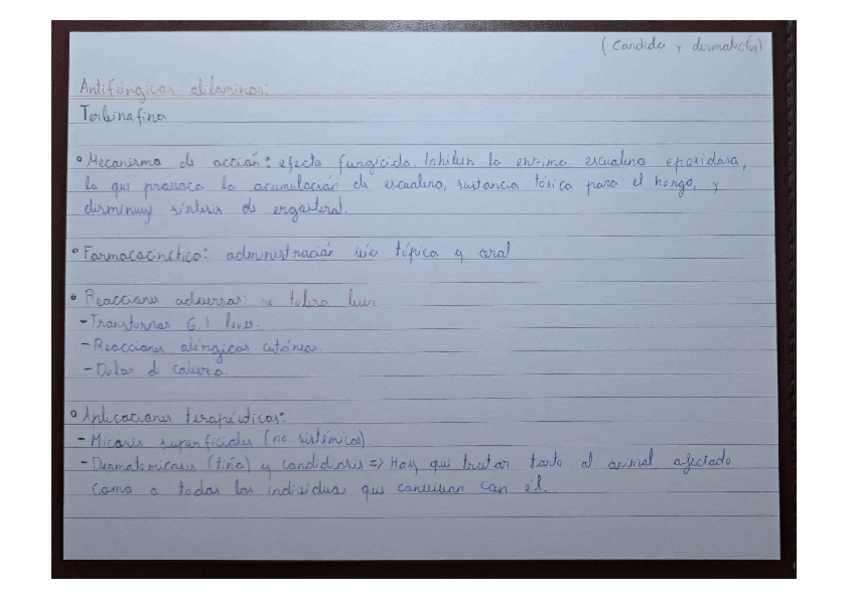 (Candida y dermatocitos)
Antifúngicos alilaminas:
Terbinafina
• Mecanismo de acción: efecto fungicida. Inhiben la enzima escualeno epoxidasa,
lo que provoca la acumulación de escualeno, sustancia tóxica para el hongo, y
disminuye síntesis de ergosterol.
• Farmacocinética: administración vía tópica y oral
• Reacciones adversas: se tolera bien
- Transtornos G.I leves.
- Reacciones alérgicas cutáneas.
- Dolor de cabeza.
• Aplicaciones terapéuticas:
- Micosis superficiales (no sistémicas)
- Dermatomicosis (tiña) y candidiasis => Hay que tratar tanto al animal afectado
como a todos los individuos que convivan con él.